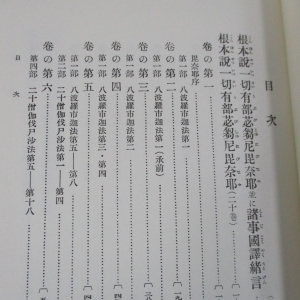 目次
根本說一切有部苾芻尼毘奈耶並に諸事國譯緒言
根本說一切有部苾芻尼毘奈耶(二十卷)
卷の第一
毘奈耶序
第一部 八波羅市迦法第一
卷の第二
第一部 八波羅市迦法第一(承前)
卷の第三
第一部 八波羅市迦法第二
卷の第四
第一部 八波羅市迦法第三・第四
卷の第五
第一部 八波羅市迦法第五—第八
第二部 二十僧伽伐尸沙法第一—第四
卷の第六
第四部 二十僧伽伐尸沙法第五—第十八
目次